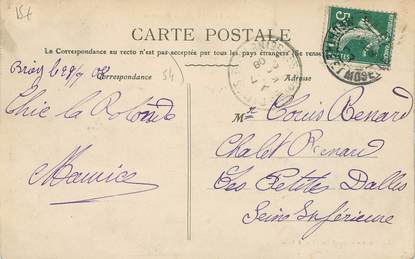 154
CARTE POSTALE
La Correspondance au recto n'est pas acceptée par tous les pays étrangers (Se rense
Correspondance
Adresse
54
Briey le 29/7 08
Chic la
Maurice
Mr Louis Renard
Chalet Renard
Les Petites Dalles
Seine Inférieure